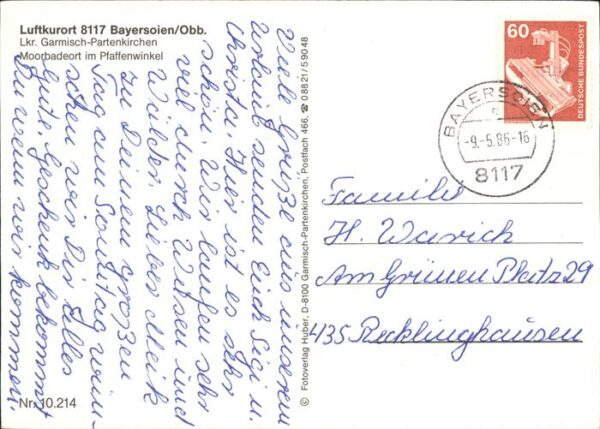 Luftkurort 8117 Bayersoien/Obb.
Lkr. Garmisch-Partenkirchen
Moorbadeort im Pfaffenwinkel
Viele Grüße aus unserem
Urlaub senden Euch Sigi u.
Christa. Hier ist es sehr
schön. Wir laufen sehr
viel durch Wiesen und
Wälder. Lieber Meik
zu Deinem großen
Tag am Sonntag wün-
schen wir Dir alles
Gute. Geschenk bekommst
Du wenn wir kommen.
Nr. 10.214
© Fotoverlag Huber, D-8100 Garmisch-Partenkirchen, Postfach 466, ☎ 08821/59048
60
DEUTSCHE BUNDESPOST
BAYERSOIEN
-9.-5.86-16
8117
Familie
H. Warich
Am Grünen Platz 29
435 Recklinghausen